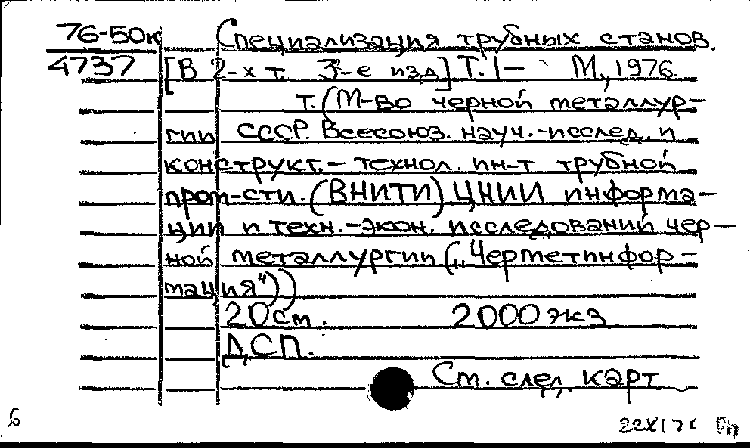 76-50к Специализация трубных станов.
4737 [В 2-х т. 3-е изд] Т. 1– М, 1976
т. (М-во черной металлур-
гии СССР. Всесоюз. науч.-исслед. и
конструкт.- технол. ин-т трубной
пром-сти. (ВНИТИ) ЦНИИ информа-
ции и техн.-экон. исследований чер-
ной металлургии („Черметинфор-
мация"))
20см. 2000 экз
ДСП.
См. след. карт
б